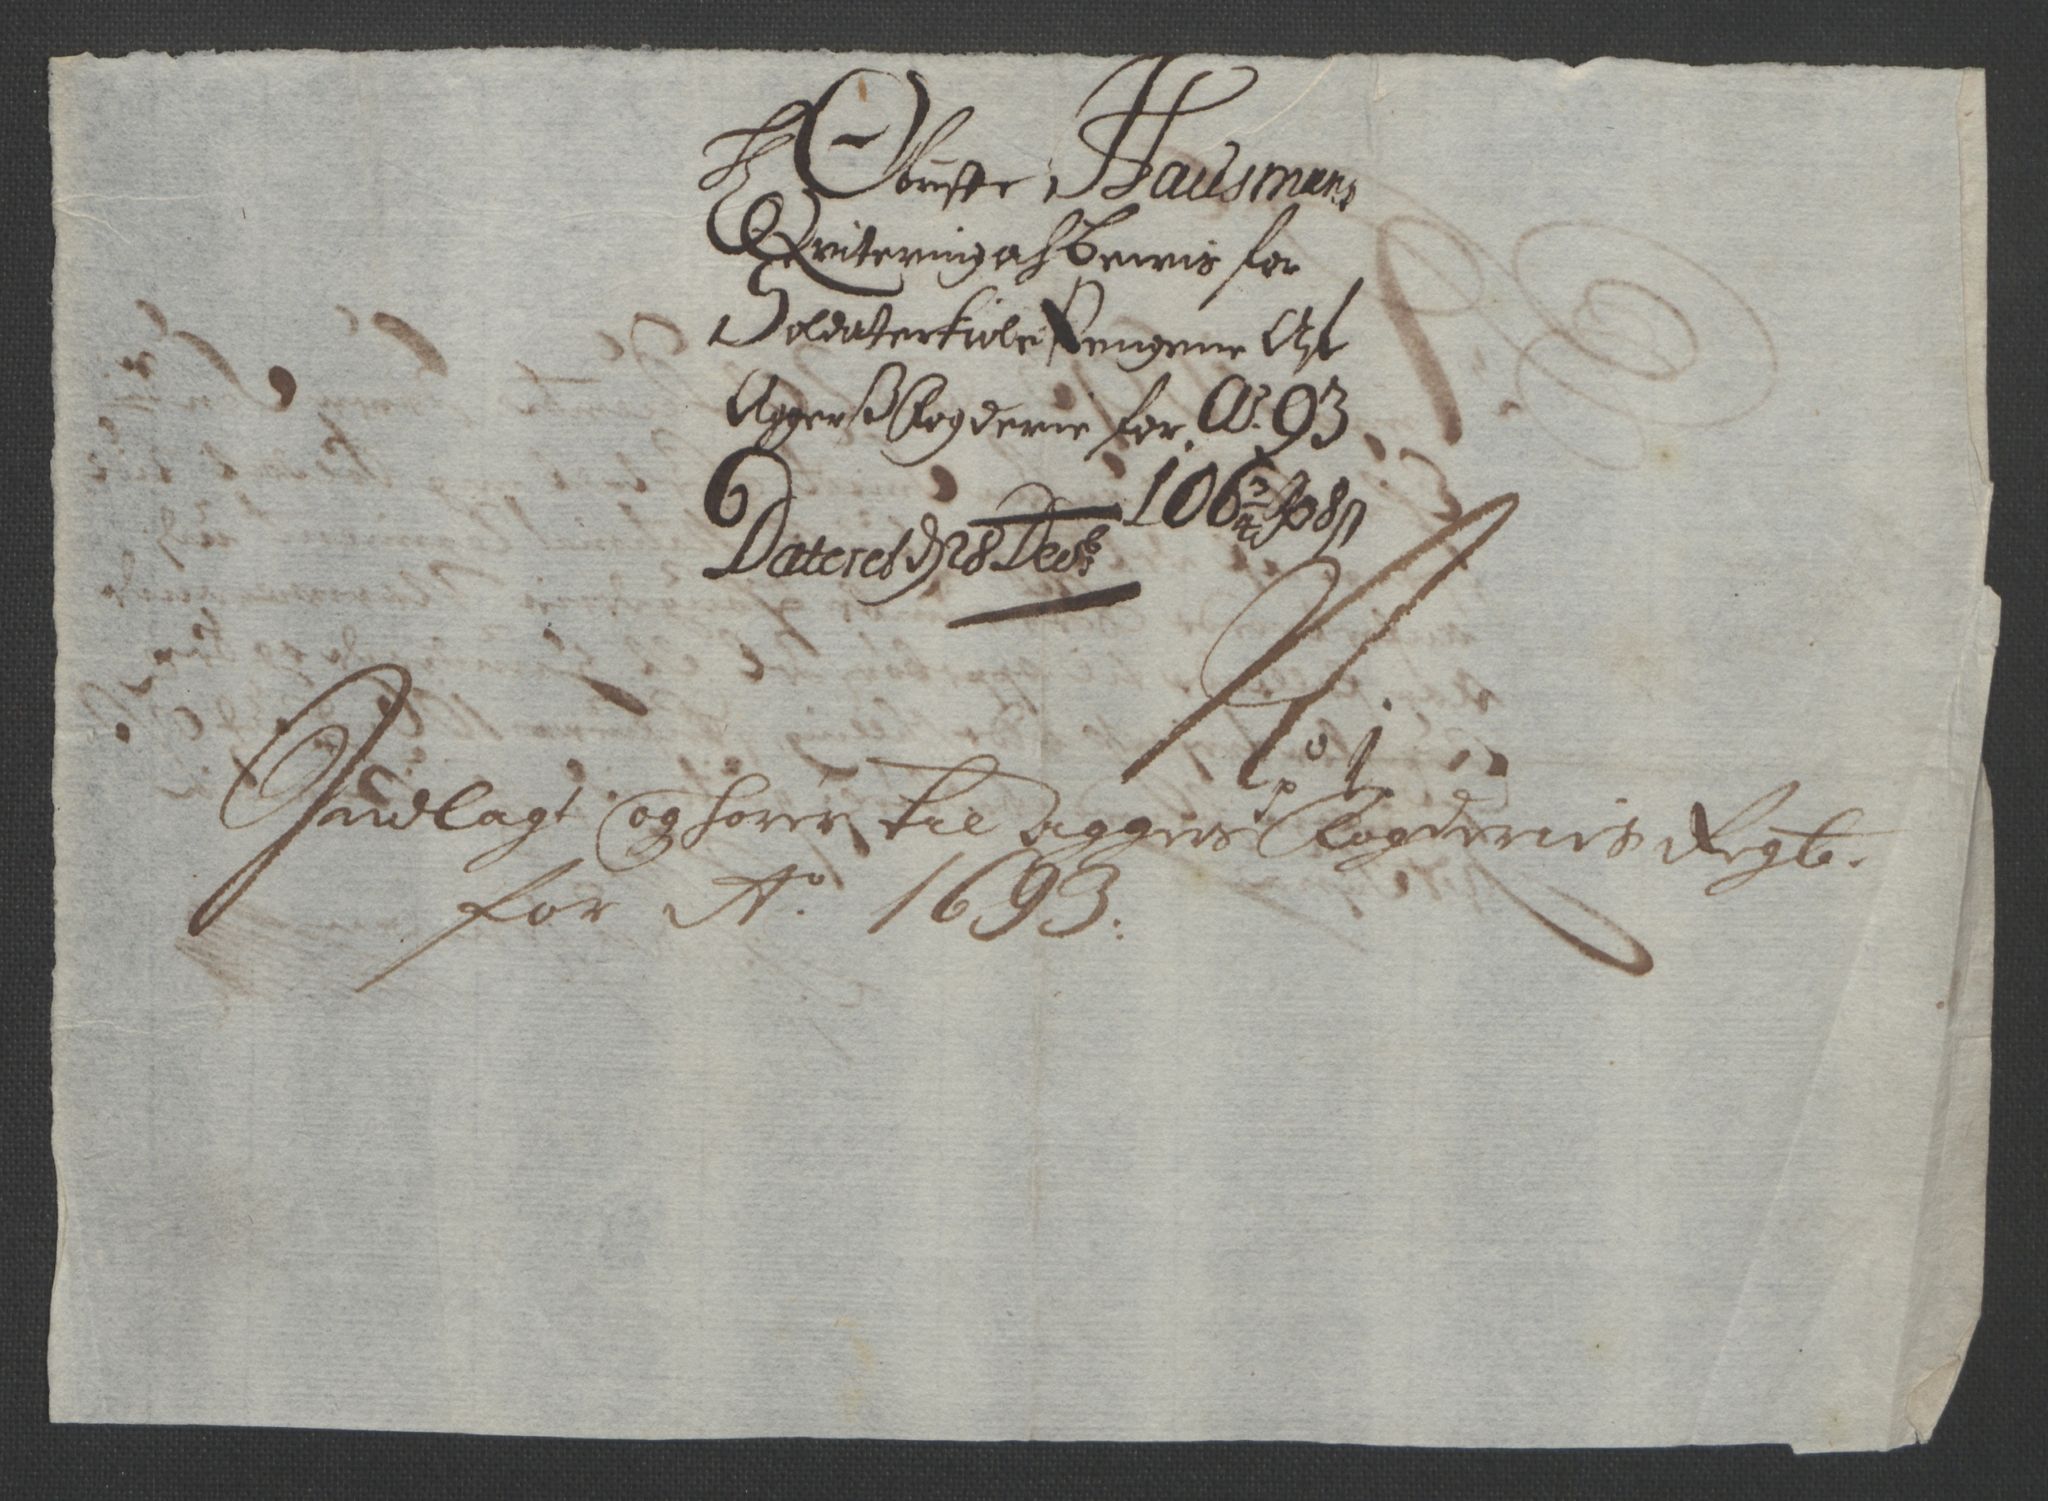 Hr Obriste Hausmans
Qvitering och beviis for
Soldaterkiole Pengene Af
Aggers Fogderie for Ao. 93
106 3/4 rdr 8 s
Dateret d 28 Decbr
No 1
Indlagt og hører til Aggers Fogderies Regnb.
for Ao. 1693.